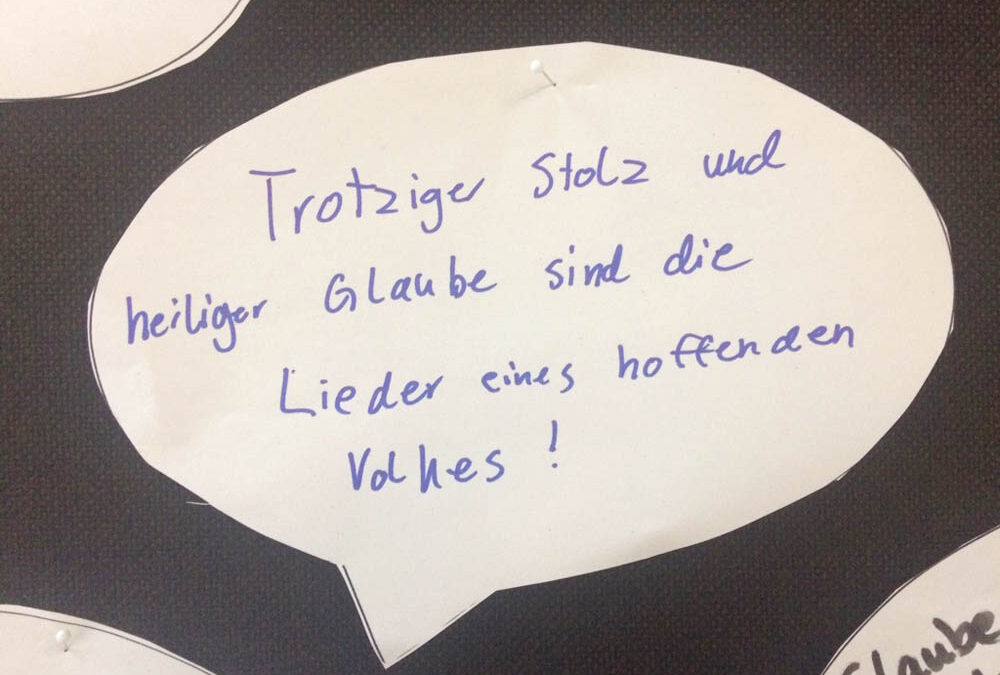 Trotziger Stolz und
heiliger Glaube sind die
Lieder eines hoffenden
Volkes!
Glaube